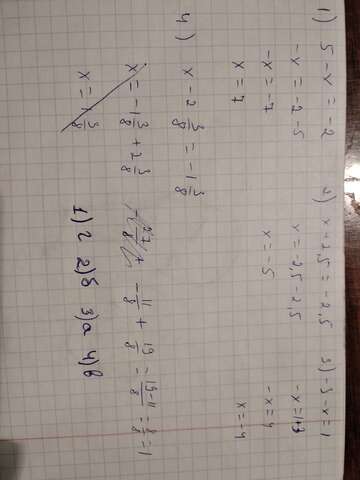 1) 5 - x = -2
-x = -2 - 5
-x = -7
x = 7
2) x + 2,5 = -2,5
x = -2,5 - 2,5
x = -5
3) -3 - x = 1
-x = 1+3
-x = 4
x = -4
4) x - 2 3/8 = -1 3/8
x = -1 3/8 + 2 3/8
x = 1 3/8
-11/8 + 19/8 = 19-11/8 = 8/8 = 1
1) г 2) б 3) а 4) в